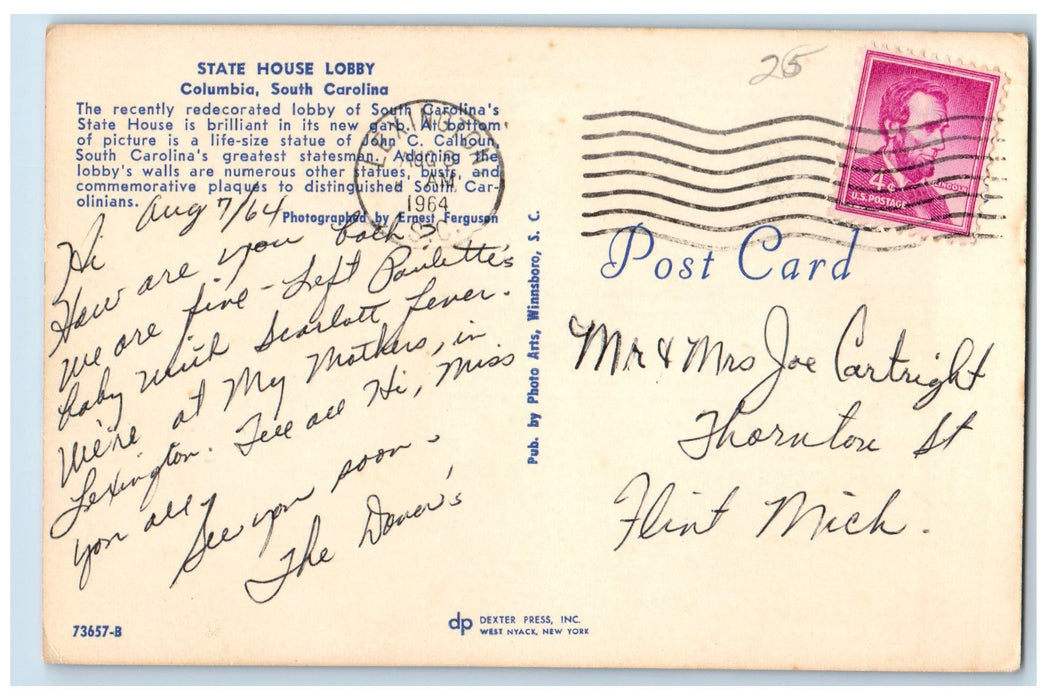 STATE HOUSE LOBBY
Columbia, South Carolina
The recently redecorated lobby of South Carolina's
State House is brilliant in its new garb. At bottom
of picture is a life-size statue of John C. Calhoun
South Carolina's greatest statesman. Adorning the
lobby's walls are numerous other statues, busts, and
commemorative plaques to distinguished South Car-
olinians.
Photographed by Ernest Ferguson
Aug 7/64
Hi
How are you both?
We are fine - Left Paulette's
baby with Scarlett fever.
We're at My Mothers, in
Lexington. Tell all Hi, Miss
you all,
See you soon -
The
73657-B
dp DEXTER PRESS, INC.
WEST NYACK, NEW YORK
Pub. by Photo Arts, Winnsboro, S. C.
LEXINGTON
AUG
AM
1964
S.C.
25
4¢
LINCOLN
U.S. POSTAGE
Post Card
Mr & Mrs Joe Cartright
Thornton St
Flint Mich.